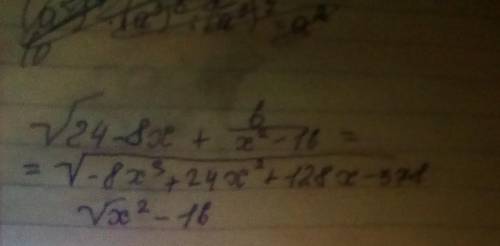 √24-8x + 6/(x²-16) =
= √-8x³+24x²+128x-378
√x²-16